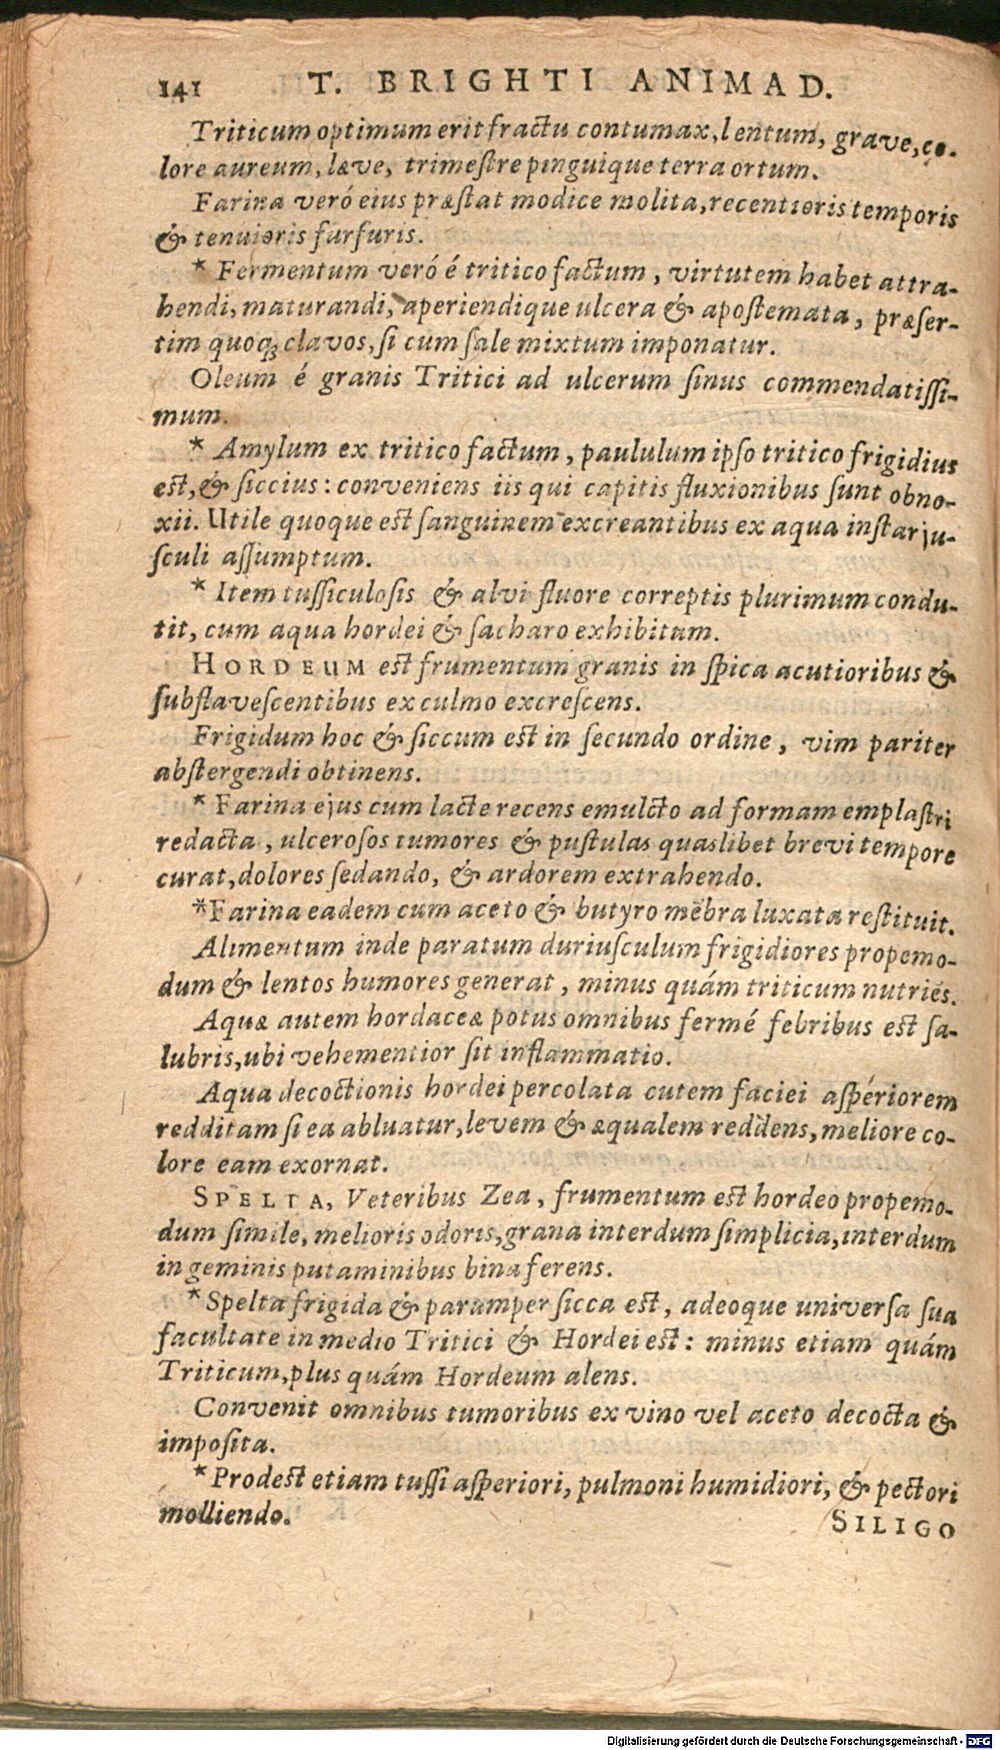 141 T. BRIGHTI ANIMAD.
Triticum optimum erit fractu contumax, lentum, grave, co-
lore aureum, læve, trimeſtre pinguique terra ortum.
Farina veró eius præſtat modice molita, recentioris temporis
& tenuioris furfuris.
* Fermentum veró é tritico factum, virtutem habet attra-
hendi, maturandi, aperiendique ulcera & apoſtemata, præſer-
tim quoqꝫ clavos, ſi cum ſale mixtum imponatur.
Oleum é granis Tritici ad ulcerum ſinus commendatiſſi-
mum.
* Amylum ex tritico factum, paululum ipſo tritico frigidius
eſt, & ſiccius: conveniens iis qui capitis fluxionibus ſunt obno-
xii. Utile quoque eſt ſanguinem excreantibus ex aqua inſtar ju-
ſculi aſſumptum.
* Item tuſſiculoſis & alvi fluore correptis plurimum condu-
tit, cum aqua hordei & ſacharo exhibitum.
HORDEUM eſt frumentum granis in ſpica acutioribus &
ſubflaveſcentibus ex culmo excreſcens.
Frigidum hoc & ſiccum eſt in ſecundo ordine, vim pariter
abſtergendi obtinens.
* Farina ejus cum lacte recens emulcto ad formam emplaſtri
redacta, ulceroſos tumores & puſtulas quaslibet brevi tempore
curat, dolores ſedando, & ardorem extrahendo.
* Farina eadem cum aceto & butyro mēbra luxata reſtituit.
Alimentum inde paratum duriuſculum frigidiores propemo-
dum & lentos humores generat, minus quám triticum nutriēs.
Aquæ autem hordaceæ potus omnibus fermé febribus eſt ſa-
lubris, ubi vehementior ſit inflammatio.
Aqua decoctionis hordei percolata cutem faciei aſpériorem
redditam ſi ea abluatur, levem & æqualem reddens, meliore co-
lore eam exornat.
SPELTA, Veteribus Zea, frumentum eſt hordeo propemo-
dum ſimile, melioris odoris, grana interdum ſimplicia, interdum
in geminis putaminibus bina ferens.
* Spelta frigida & parumper ſicca eſt, adeoque univerſa ſua
facultate in medio Tritici & Hordei eſt: minus etiam quám
Triticum, plus quám Hordeum alens.
Convenit omnibus tumoribus ex vino vel aceto decocta &
impoſita.
* Prodeſt etiam tuſſi aſperiori, pulmoni humidiori, & pectori
molliendo.
SILIGO
Digitalisierung gefördert durch die Deutsche Forschungsgemeinschaft - DFG